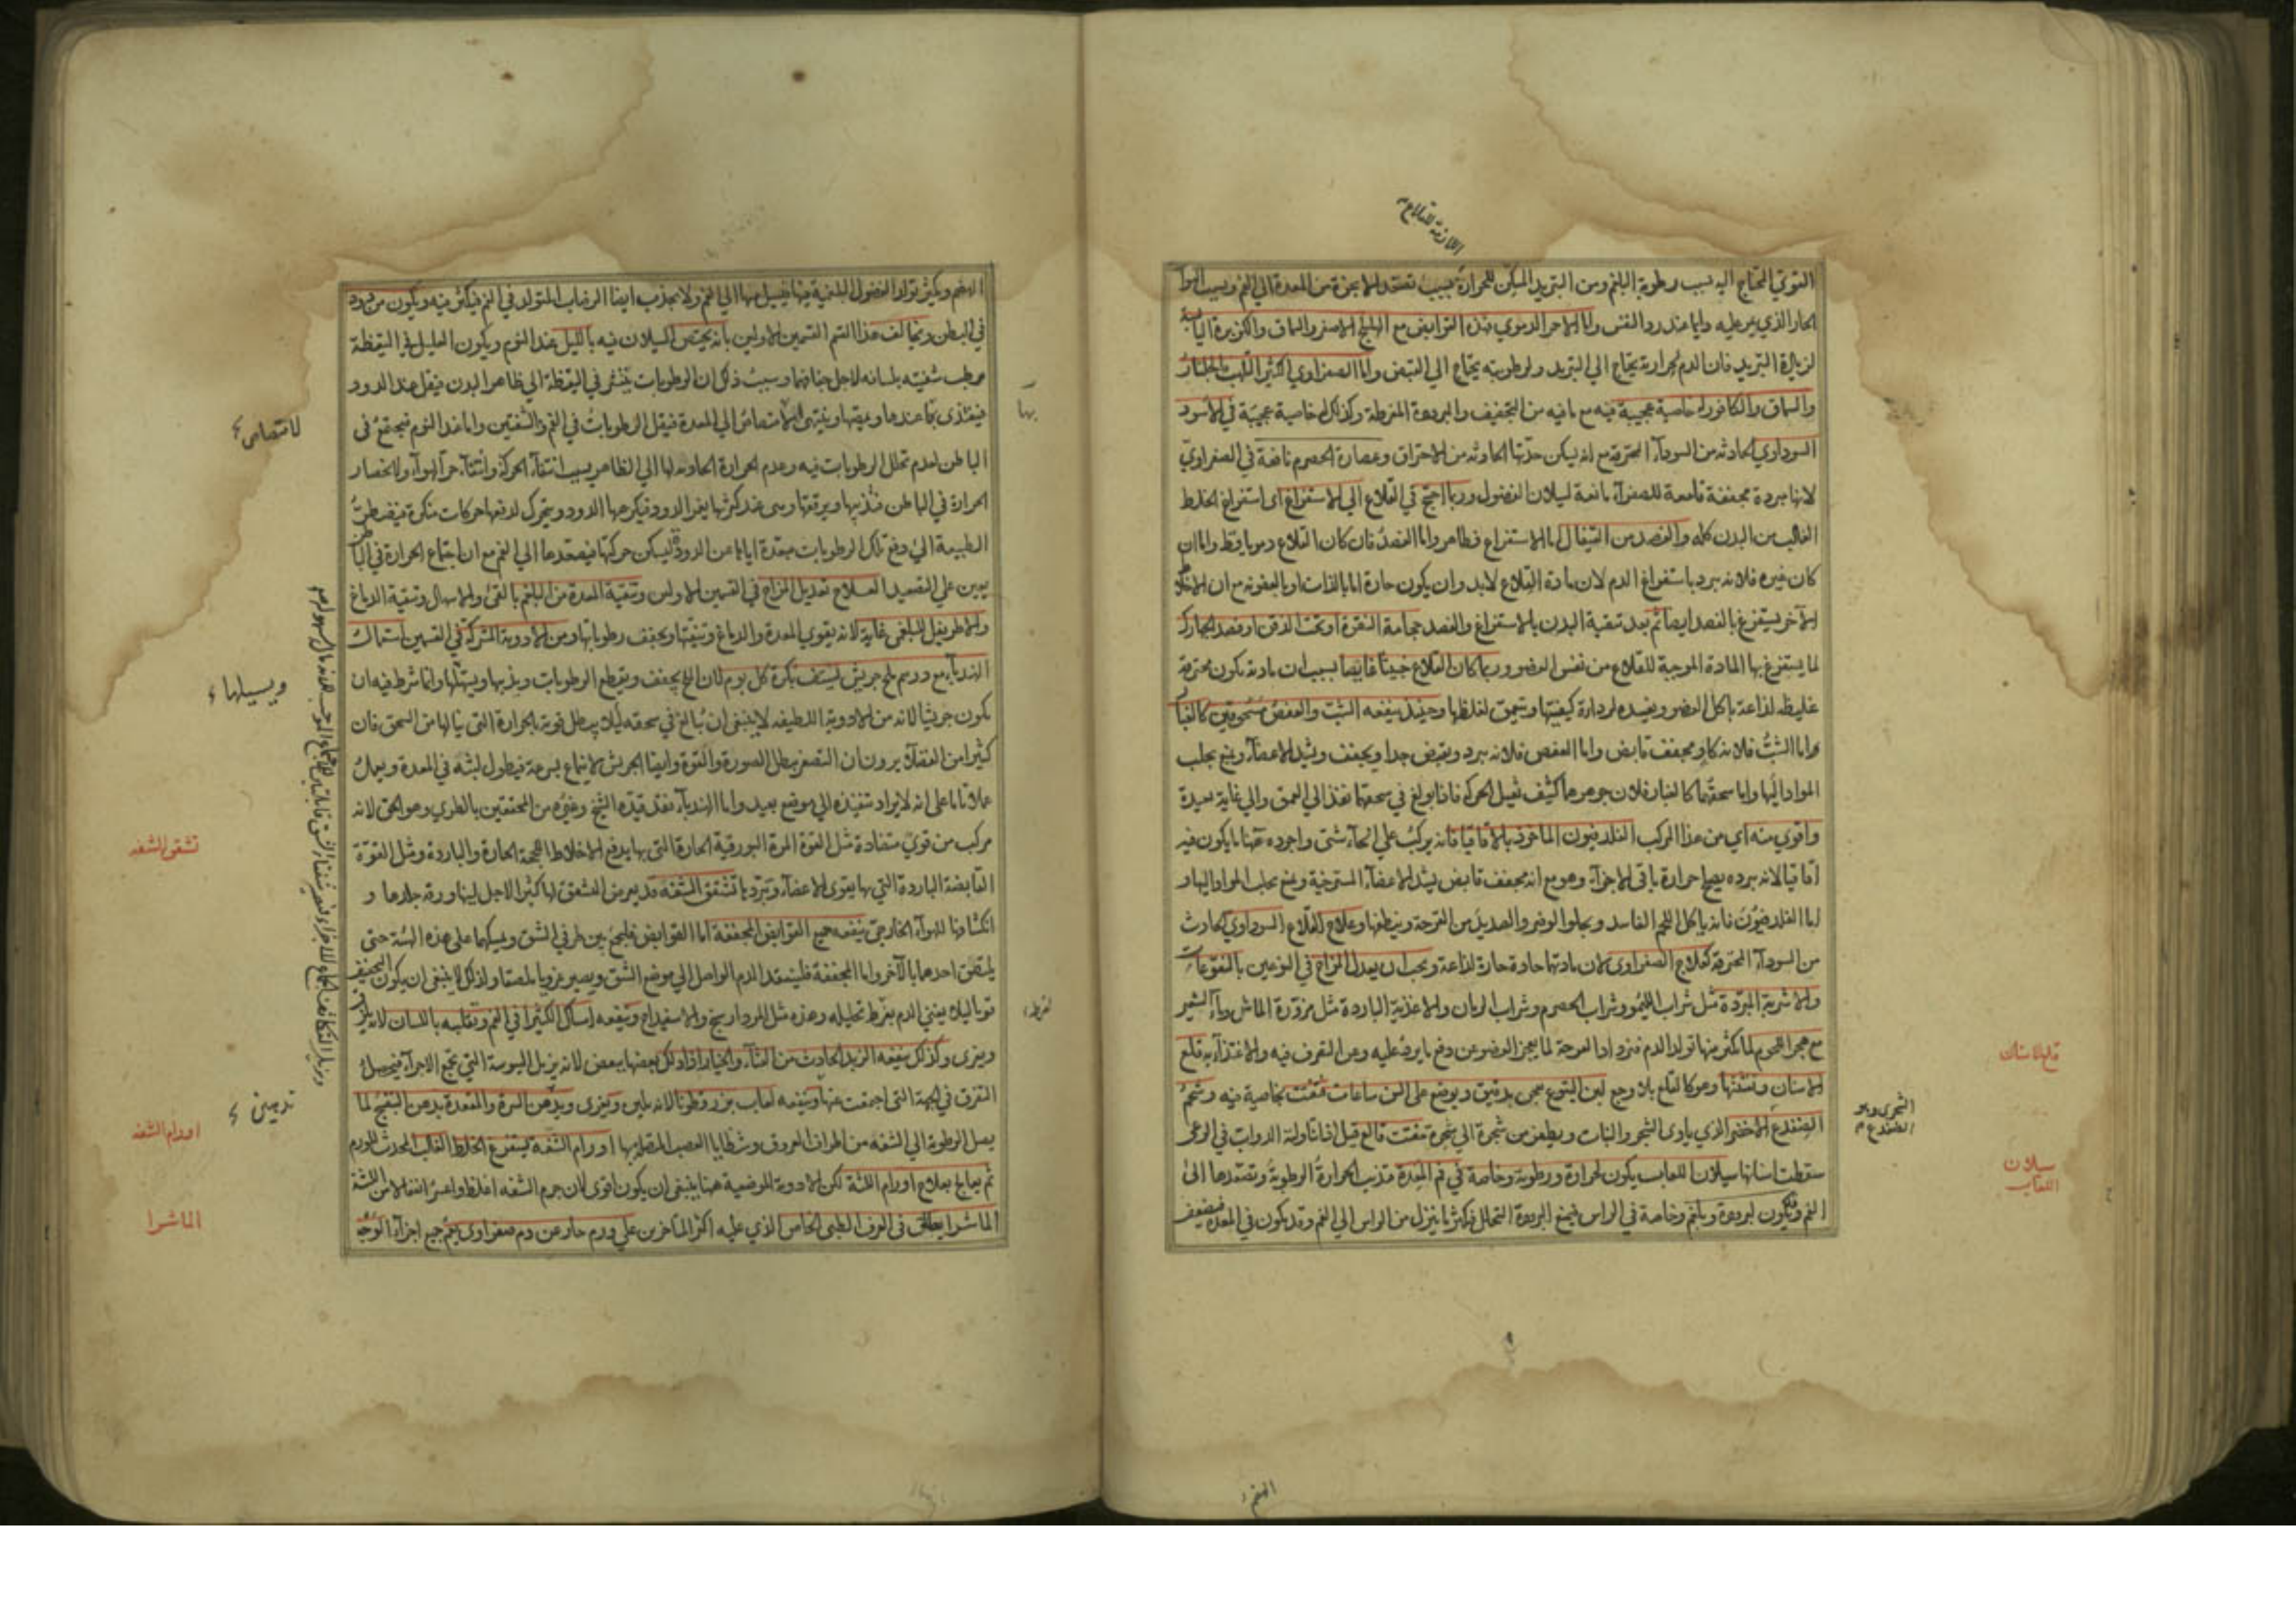 اللازمة للقلاع
القوي المحتاج اليه بسبب رطوبة البلغم ومن التبريد المسكن للحرارة بسبب تصعد الابخرة من المعدة الي الفم وبسبب الهواء
الحار الذي يمر عليه دايما عند رد النفس واما الاحمر الدموي فهذه القوابض مع الهليلج الاصفر والسماق والكزبرة اليابسة
لزيادة التبريد فان الدم لحرارته يحتاج الي التبريد ولرطوبته يحتاج الي القبض واما الصفراوي اكثر اللهب فالجلنار
والسماق والكافور له خاصية عجيبة فيه مع ما فيه من التجفيف والبرودة المفرطة وكذلك له خاصية عجيبة في الاسود
السوداوي الحادثة من السوداء المحترقة مع انه يسكن حدتها الحادثة من الاحتراق وعصارة الحصرم نافعة في الصفراوي
لانها مبردة مجففة قامعة للصفراء مانعة لسيلان الفضول وربما احتيج في القلاع الي الاستفراغ اي استفراغ الخلط
الغالب من البدن كله والفصد من القيفال اما الاستفراغ فظاهر واما الفصد فان كان القلاع دمويا فقط واما ان
كان غيره فلانه يبرد باستفراغ الدم لان مادة القلاع لابد وان يكون حارة اما بالذات او بالعفونة مع ان الاخلاط
الآخر يستفرغ بالفصد ايضا ثم بعد تنقية البدن بالاستفراغ والفصد حجامة النقرة او تحت الذقن او فصد الجهارك
لما يستفرغ بها المادة الموجبة للقلاع من نفس العضو وربما كان القلاع خبيثا بسبب ان مادته يكون محترقة
غليظة لذاعة ياكل العضو ويفسده لرداءة كيفيتها ويتعمق لغلظها وحينئذ ينفعه الشب والعفص مسحوقين كالغبار
اما الشب فلانه كاو مجفف قابض واما العفص فلانه يبرد ويقبض جدا ويجفف ويشد الاعضاء ويمنع تجلب
المواد اليها واما سحقهما كالغبار فلان جوهرهما كثيف ثقيل الحركة فاذا بولغ في سحقهما نفذ الي العمق والي غاية بعيدة
واقوي منه اي من هذا المركب الفلدفيون الماخوذ بالاقاقيا فانه يركب علي انحاء شتى واجوده ههنا ما يكون فيه
اقاقيا لانه ببرده يصلح حرارة باقي الاجزاء وهو مع انه مجفف قابض يشد الاعضاء المسترخية ويمنع تحلب المواد اليها و
اما الفلدفيون فانه ياكل اللحم الفاسد ويجلو الوضر والصديد من القرحة وينظفها وعلاج القلاع السوداوي الحادث
من السوداء المحترقة كعلاج الصفراوي لان مادتها حادة حارة لذاعة ويجب ان يعدل المزاج في النوعين بالنقوعات
والاشربة المبردة مثل شراب الليمو وشراب الحصرم وشراب الرمان والاغذية الباردة مثل مزورة الماش وماء الشعير
مع هجر اللحوم لما يكثر منها تولد الدم فيزداد القرحة لما يعجز العضو عن دفع ما يرد عليه وعن التصرف فيه والاغتذاء به قلع
الاسنان وتفتتها وهو كالقلع بلا وجع لبن اليتوع يعجن بدقيق ويوضع على السن ساعات تفتت بخاصية فيه وشحم
الضفدع الاخضر الذي ياوي الشجر والنبات ويطفر من شجرة الي شجرة مفتت قالع قيل اذا تناولته الدواب في الرعي
سقطت اسنانها سيلان اللعاب يكون لحرارة ورطوبة وخاصة في فم المعدة فتذيب الحرارة الرطوبة وتصعدها الى
الفم وقد يكون لبرودة وبلغم وخاصة في الراس فيمنع البرودة التحلل فيكثر ما ينزل من الراس الي الفم وقد يكون في المعدة فيضعف
قلع الاسنان
الشجري وهو
الضفدع
سيلان
اللعاب
الهضم
الهضم ويكثر تولد الفضول البلغمية فيها فيسيل منها الي الفم ولا يجذب ايضا الرضاب المتولد في الفم فيكثر فيه ويكون من دود
في البطن ويخالف هذا القسم القسمين الاولين بانه يختص السيلان فيه بالليل عند النوم ويكون العليل في اليقظة
مرطب شفتيه بلسانه لاجل جفافهما وسبب ذلك ان الرطوبات ينتشر في اليقظة الي ظاهر البدن فيقل عند الدود
فيغتذي بما عندها ويمتصها وينتهي الامتصاص الي المعدة فيقل الرطوبات في الفم والشفتين واما عند النوم فيجتمع في
الباطن لعدم تحلل الرطوبات فيه وعدم الحرارة الجاذبة لها الي الظاهر بسبب انتفاء الحركة وانتفاء حر الهواء ولانحصار
الحرارة في الباطن فتذيبها ويرققها وهي عند كثرتها يغمر الدود فيكرهها الدود ويتحرك لدفعها حركات منكرة فيضطر
الطبيعة الي دفع تلك الرطوبات مبعدة اياها عن الدود ليسكن حركتها فيصعدها الي الفم مع ان اجتماع الحرارة في الباطن
يعين علي التصعيد العلاج تعديل المزاج في القسمين الاولين وتنقية المعدة من البلغم بالقئ والاسهال وتنقية الدماغ
والاطريفل للبلغمي غاية لانه يقوي المعدة والدماغ وينقيها ويجفف رطوباتها ومن الادوية المشتركة في القسمين استعمال
الهندباء مع درهم ملح جريش ليستف بكرة كل يوم لان الملح يجفف ويقطع الرطوبات ويذيبها وانما شرط فيه ان
يكون جريشا لانه من الادوية اللطيفة لا ينبغي ان يبالغ في سحقه ليلا يبطل قوته بالحرارة التي ينالها من السحق فان
كثيرا من العقلاء يرون ان التصغر يبطل الصورة والقوة وايضا الجريش لا ينماع بسرعة فيطول لبثه في المعدة ويعمل
عملا تاما على انه لا يراد تنفيذه الي موضع بعيد واما الهندباء فقد قيده الشيخ وغيره من المحققين بالطري وهو الحق لانه
مركب من قوي متضادة مثل القوة المرة البورقية الحارة التي بها يدفع الاخلاط الفجة الحارة والباردة ومثل القوة
القابضة الباردة التي بها يقوي الاعضاء ويبردها تشقق الشفة قد يعرض الشقق لها كثيرا لاجل لينها ورقة جلدها و
انكشافها للهواء الخارجي ينفعه جميع القوابض المجففة اما القوابض فليجمع بين طرفي الشق ويمسكهما على هذه الهيئة حتى
يلتصق احدهما بالآخر واما المجففة فلينعقد الدم الواصل الي موضع الشق ويصير غرويا ملصقا ولذلك لا ينبغي ان يكون التجفيف
قويا ليلا يفني الدم بفرط تحليله وهذه مثل المرداسنج والاسفيداج وينفعه امساك الكثيرا في الفم وتقليبه باللسان لانه يلزج
ويغري وكذلك ينفعه الزبد الحادث من القثاء والخيار اذا دلك بعضها ببعض لانه يزيل اليبوسة التي تجمع الاجزاء فيحصل
التفرق في الجهة التي اجتمعت عنها وينفعه لعاب بزرقطونا لانه يلين ويغري ويدهن السرة والمقعدة بدهن البنفسج لما
يصل الرطوبة الي الشفة من اطراف العروق وشظايا العصب المتصلة بها اورام الشفة يستفرغ الخلط الغالب المحدث للورم
ثم يعالج بعلاج اورام اللثة لكن الادوية الموضعية ههنا ينبغي ان يكون اقوي لان جرم الشفة اغلظ واعسر انفعالا من اللثة
الماشرا يطلق في العرف الطبي الخاص الذي عليه اكثر المتاخرين علي ورم حار عن دم صفراوي يعم جميع اجزاء الوجه
بها
لامتصاص
ويسيلها
تشقق الشفة
لفرط
تدهين
اورام الشفة
الماشرا